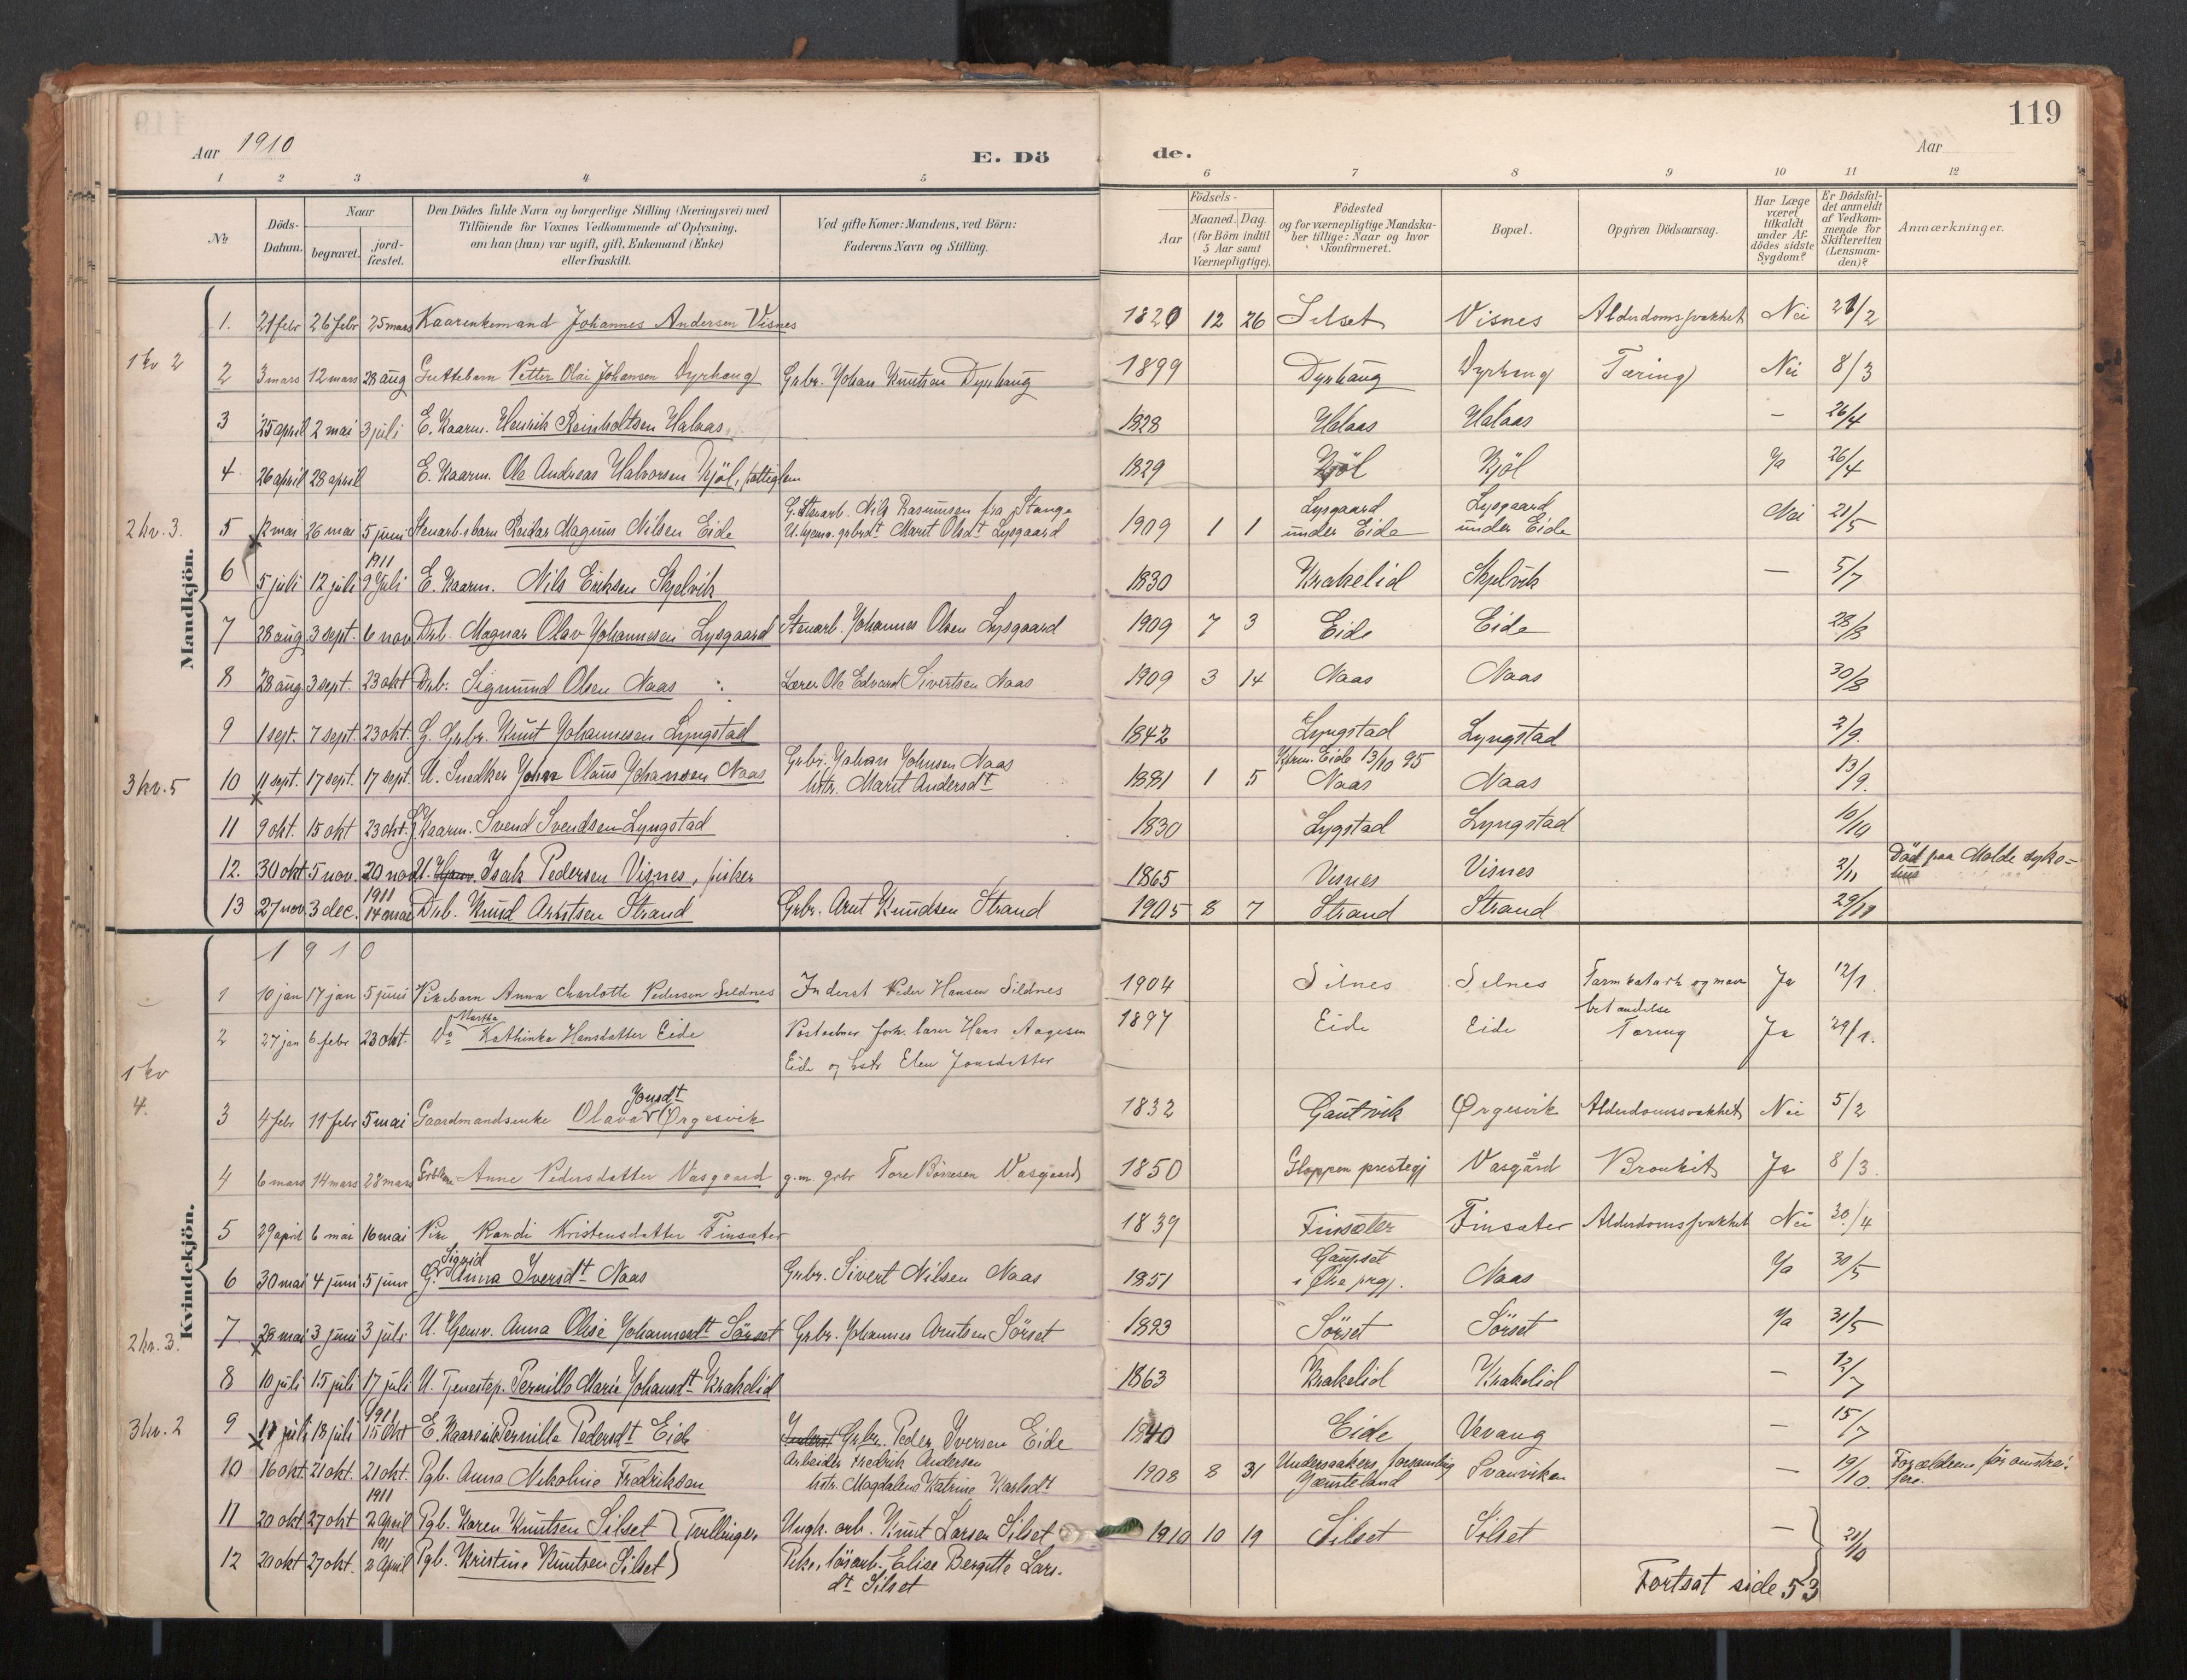 119
Aar 1910
E. Dö
de.
Aar
1 2 3 4 5 6 7 8 9 10 11 12
No
Döds-Datum.
Naar
begravet.
jord-fæstet.
Den Dödes fulde Navn og borgerlige Stilling (Næringsvei) med
Tilföiende for Voxnes Vedkommende af Oplysning,
om han (hun) var ugift, gift, Enkemand (Enke)
eller fraskilt.
Ved gifte Koner: Mandens, ved Börn:
Faderens Navn og Stilling.
Födsels-
Aar
Maaned. Dag.
(for Börn indtil
5 Aar samt
Værnepligtige).
Födested
og for værnepligtige Mandska-
ber tillige: Naar og hvor
Konfirmeret.
Bopæl.
Opgiven Dödsaarsag.
Har Læge
været
tilkaldt
under Af-
dödes sidste
Sygdom?
Er Dödsfal-
det anmeldt
af Vedkom-
mende for
Skifteretten
(Lensman-
den)?
Anmærkninger.
Mandkjön.
1. 21 febr 26 febr 25 mars Kaarenkemand Johannes Andersen Visnes 1820 12 26 Silset Visnes Alderdomssvakhet Nei 21/2
1 kv 2
2 3 mars 12 mars 28 aug Guttebarn Petter Olai Johansen Dyrhaug Grbr. Johan Knutsen Dyrhaug 1899 Dyrhaug Dyrhaug Tæring Nei 8/3
3 25 april 2 mai 3 juli E. Kaarm. Henrik Reinholtsen Halaas 1828 Halaas Halaas — 26/4
4 26 april 28 april E. Kaarm. Ole Andreas Halvorsen Kjöl, fattiglem 1829 Kjöl Kjöl Ja 26/4
G. Stenarb. Nils Rasmussen fra Stange Lysgaard Lysgaard
2 kv. 3. 5 12 mai 26 mai 5 juni Stenarb.sbarn Reidar Magnus Nilsen Eide U. hjemv. grbrdt Marit Olsdt Lysgaard 1909 1 1 under Eide under Eide Nei 21/5
1911
6 5 juli 12 juli 9 juli E. Kaarm. Nils Eriksen Skjelvik 1830 Krakelid Skjelvik — 5/7
7 28 aug 3 sept. 6 nov Drb. Magnar Olav Johannesen Lysgaard Stenarb. Johannes Olsen Lysgaard 1909 7 3 Eide Eide 28/8
8 28 aug 3 sept. 23 okt Drb. Sigmund Olsen Naas Lærer Ole Edvard Sivertsen Naas 1909 3 14 Naas Naas 30/8
9 1 sept. 7 sept. 23 okt. G. Grbr. Knut Johannesen Lyngstad 1842 Lyngstad Lyngstad 2/9.
Grbr. Johan Johnsen Naas Kfrm. Eide 13/10 95
3 kv. 5 10 11 sept. 17 sept. 17 sept. U. Snedker Johan Olaus Johansen Naas hstr. Marit Andersdt 1881 1 5 Naas Naas 13/9.
11 9 okt. 15 okt 23 okt. G. Kaarm. Svend Svendsen Lyngstad 1830 Lygstad Lyngstad 10/10
12. 30 okt 5 nov. 20 nov U. Isak Pedersen Visnes, fisker 1865 Visnes Visnes 2/11 Död paa Molde syke=
hus
1911
13 27 nov 3 dec. 14 mai Drb. Knud Arntsen Strand Grbr. Arnt Knudsen Strand 1905 8 7 Strand Strand 29/11
Kvindekjön.
1910
1 10 jan 17 jan 5 juni Pikebarn Anna Charlotte Pedersen Sildnes Inderst Peder Hansen Sildnes 1904 Silnes Silnes Tarmkatarh og mave Ja 12/1
betændelse
2 27 jan 6 febr 23 okt. Do Martha Kathinka Hansdatter Eide Postaabner forh. lærer Hans Aagesen 1897 Eide Eide Tæring Ja 29/1.
Eide og hstr Elen Jonsdatter
1 kv
4.
Jonsdt
3 4 febr 11 febr 5 mai Gaardmandsenke Olava Ørgesvik 1832 Gautvik Ørgesvik Alderdomssvakhet Nei 5/2
4 6 mars 14 mars 28 mars Anne Pedersdatter Vasgaard g.m. grbr Tore Vasgaard 1850 Gloppen prestegj Vasgård Bronkit Ja 8/3.
5 29 april 6 mai 16 mai Pike Randi Kristensdatter Finsæter 1839 Finsæter Finsæter Alderdomssvakhet Nei 30/4
Sigrid Gaupset
6 30 mai 4 juni 5 juni G. Anna Iversdt Naas Grbr. Sivert Nilsen Naas 1851 i Øre prgj. Naas Ja 30/5
2 kv. 3. 7 28 mai 3 juni 3 juli U. Hjemv. Anna Olise Johannesdt Sörset Grbr. Johannes Arntsen Sörset 1893 Sörset Sörset Ja 31/5
8 10 juli 15 juli 17 juli U. Tjenestep. Pernille Marie Johansdt Krakelid 1863 Krakelid Krakelid — 12/7
1911
3 kv. 2 9 11 juli 18 juli 15 okt E. Kaarenk Pernille Pedersdt Eide Inderst Grbr. Peder Iversen Eide 1840 Eide Vevang — 15/7
Arbeider Fredrik Andersen Undersaakers forsamling
10 16 okt 21 okt. 21 okt. Pgb. Anna Nikoline Fredriksen hstr. Magdalene Katrine Karlsdt 1908 8 31 Jæmteland Svanviken — 19/10. Forældrene för omstrei-
fere.
1911
11 20 okt 27 okt 2 april Pgb. Karen Knutsen Silset } Tvillinger Ungk. arb. Knut Larsen Silset 1910 10 19 Silset Silset — } 21/10
1911
12 20 okt 27 okt. 2 april Pgb. Kristine Knutsen Silset } Pike, lösarb. Elise Bergitte Lars-
dt Silset
Fortsat side 53